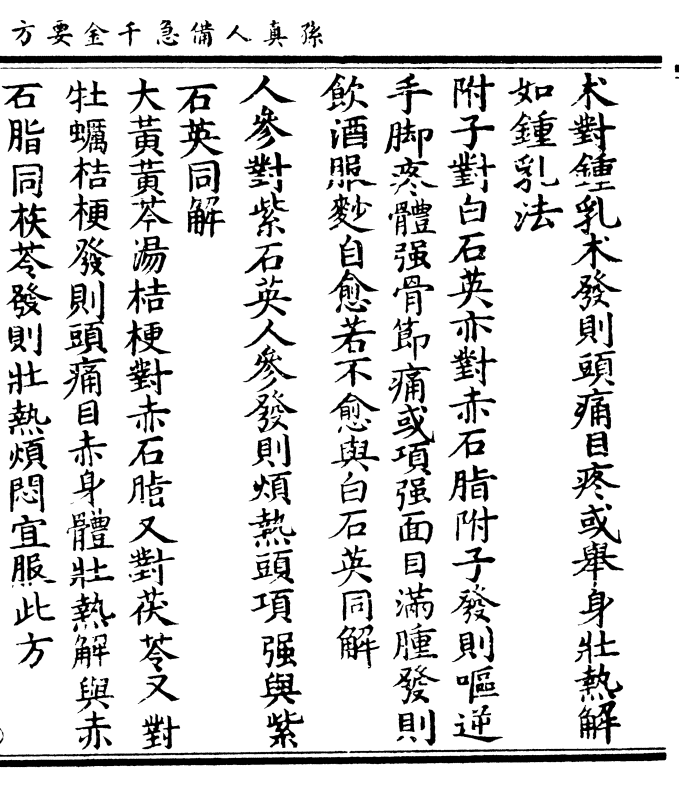 孫真人備急千金要方
术對鍾乳术發則頭痛目疼或舉身壯熱解
如鍾乳法
附子對白石英亦對赤石脂附子發則嘔逆
手脚疼體强骨節痛或項强面目滿腫發則
飲酒服麨自愈若不愈與白石英同解
人參對紫石英人參發則煩熱頭項强與紫
石英同解
大黃黃芩湯桔梗對赤石脂又對茯苓又對
牡蠣桔梗發則頭痛目赤身體壯熱解與赤
石脂同茯苓發則壯熱煩悶宜服此方